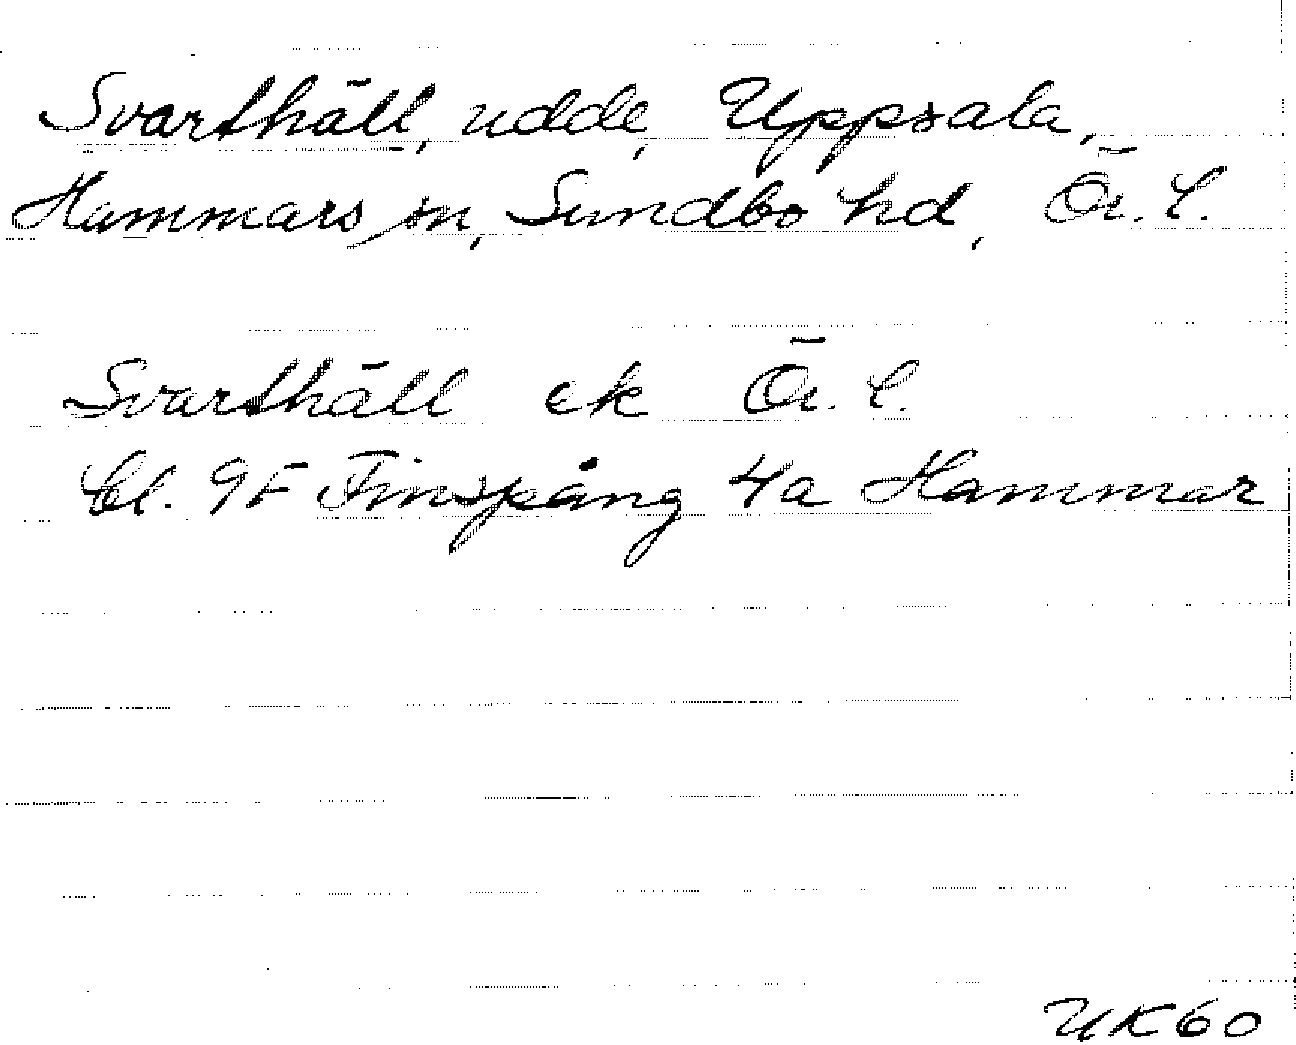 Svarthäll, udde, Uppsala,
Hammars sn, Sundbo hd, Ör. l.
Svarthäll ek Ör. l.
bl. 9F Finspång 4a Hammar
UK60